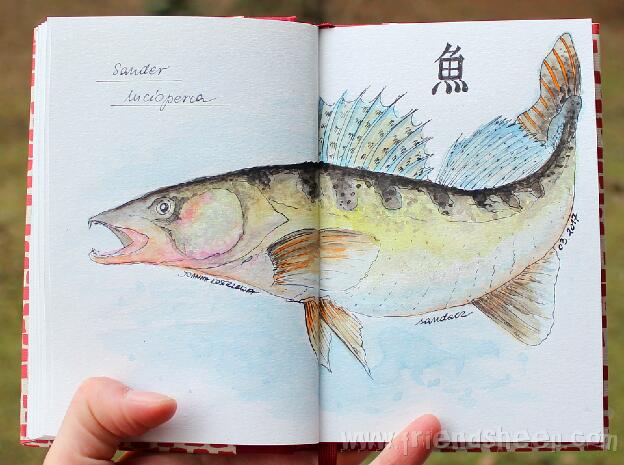 Sander
lucioperca
魚
sandacz
03 2017
www.friendsheep.com